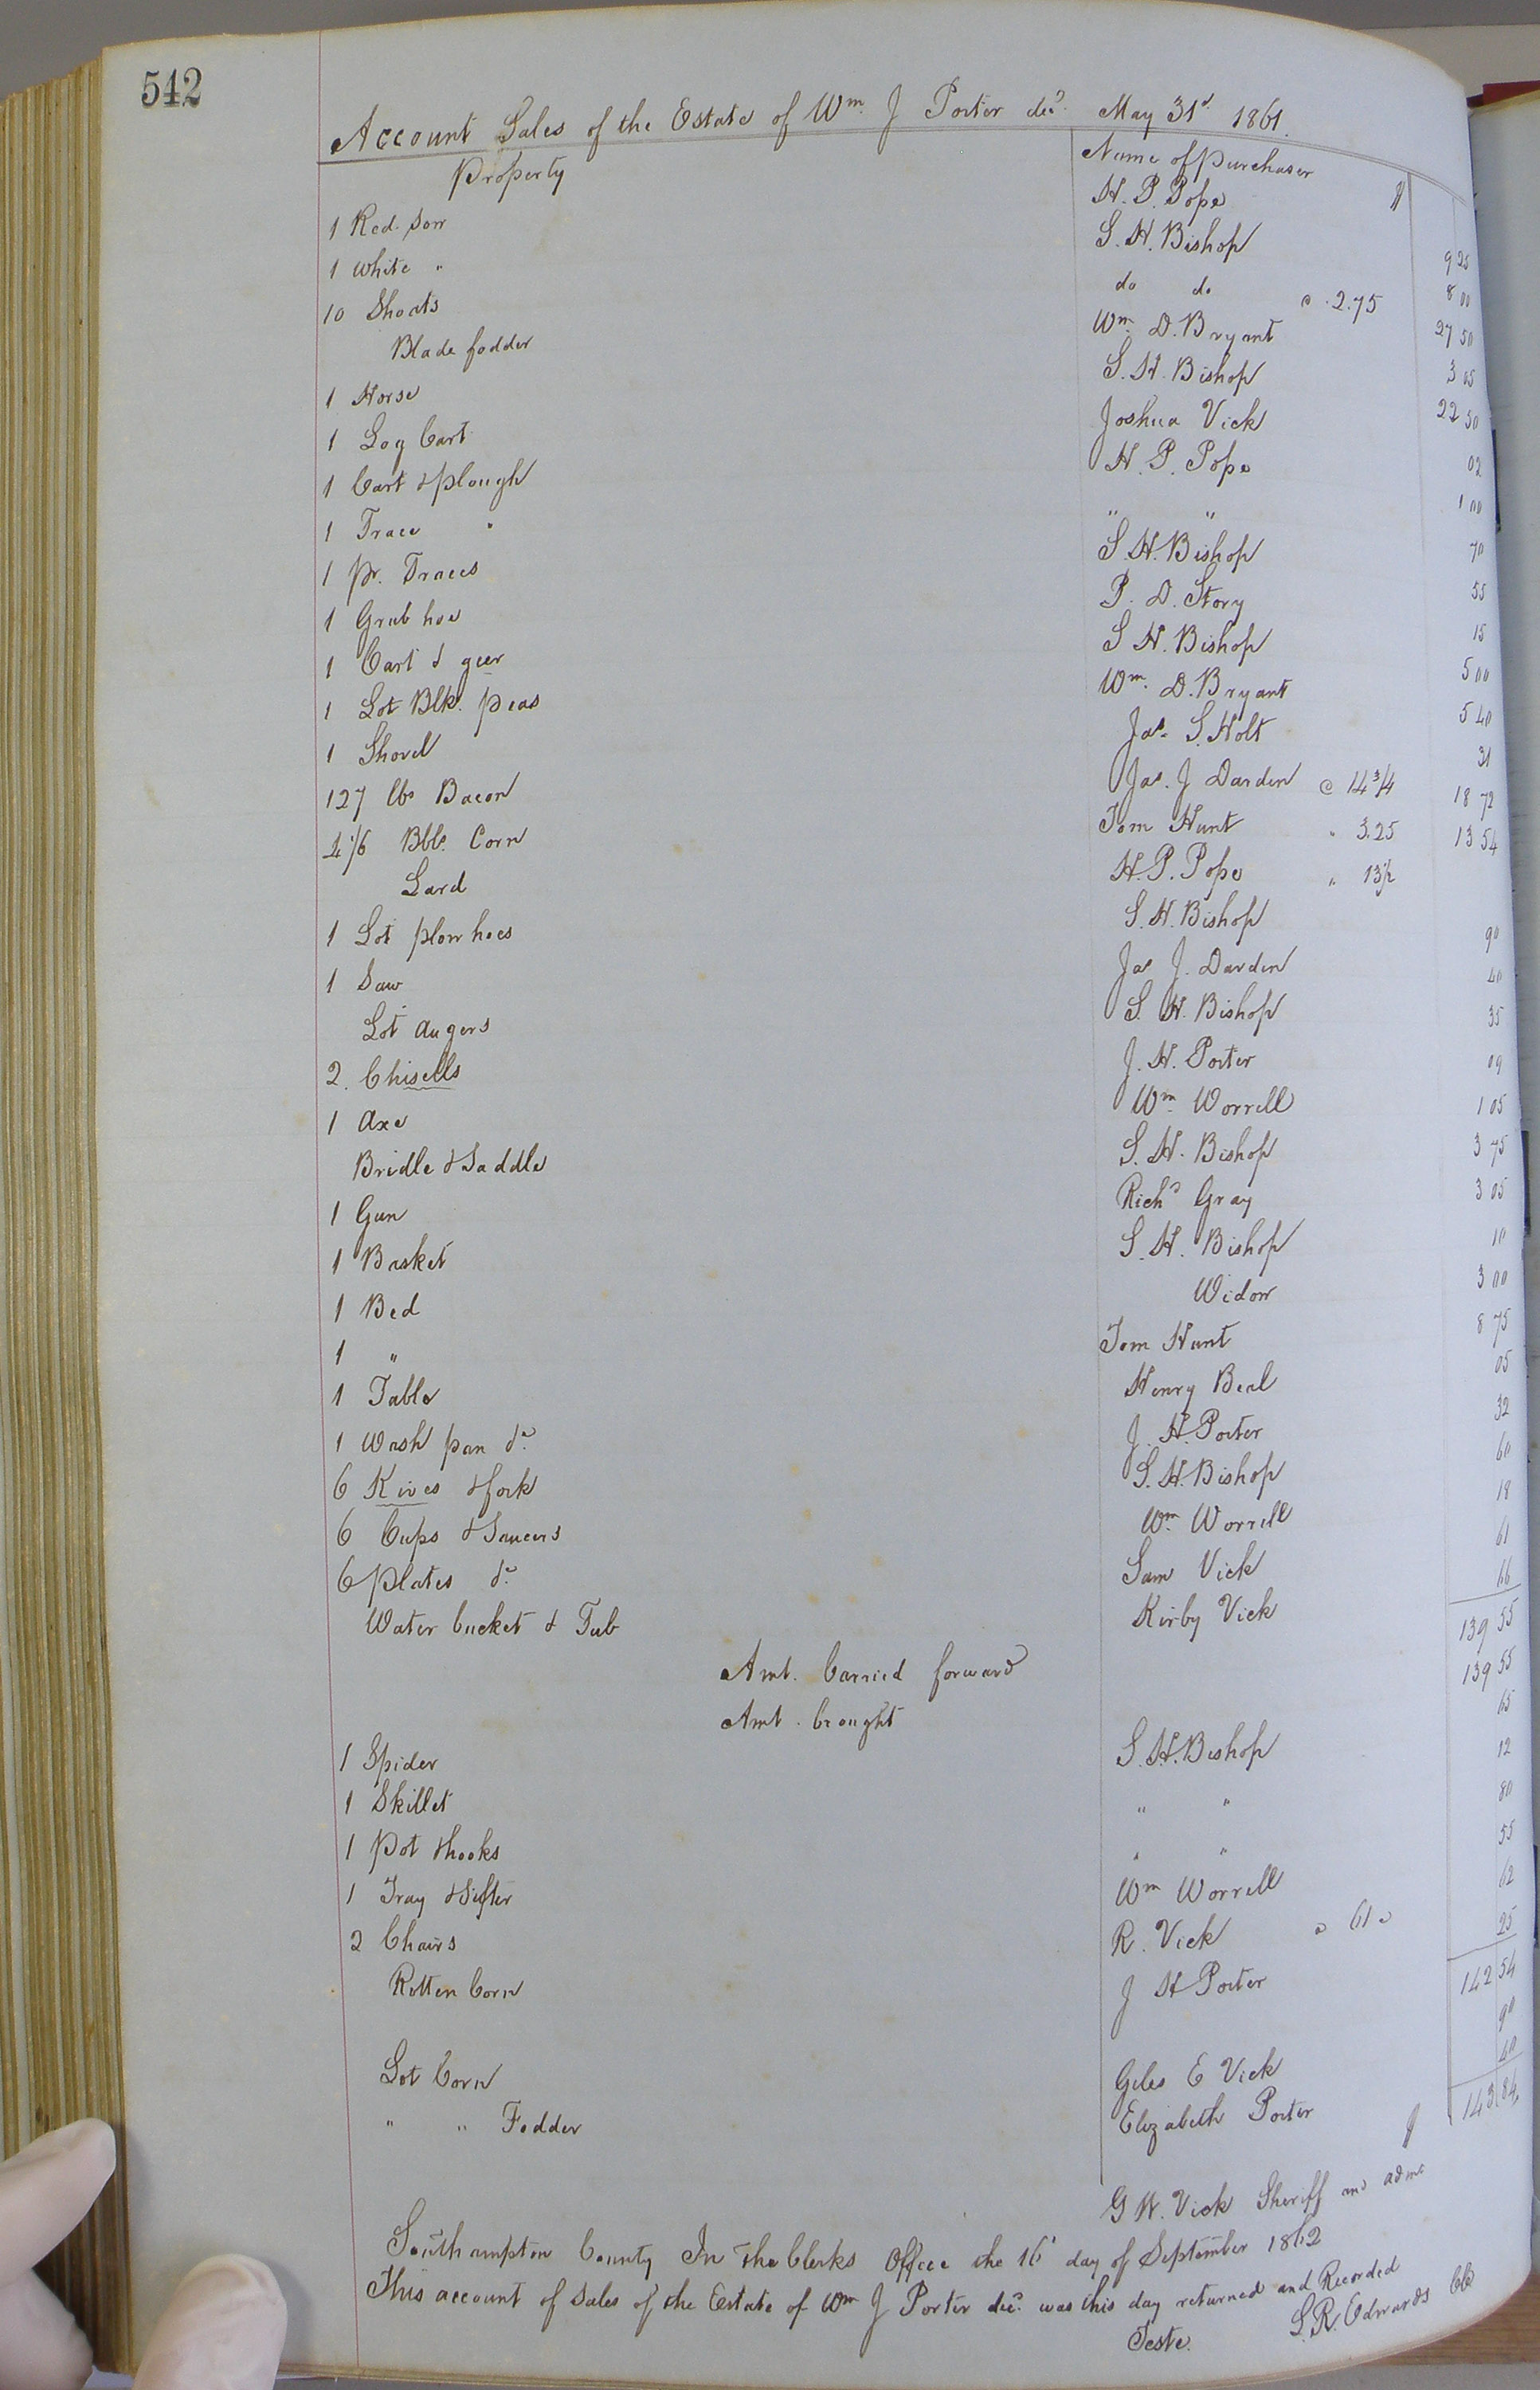 542
Account Sales of the Estate of Wm. J Porter decd. May 31st 1861.
Property Name of purchaser
1 Red. Sow H. P. Pope $ 9 25
1 White " S. H. Bishop 8 00
10 Shoats do do @ 2.75 27 50
Blade fodder Wm. D. Bryant 3 05
1 Horse S. H. Bishop 22 50
1 Log Cart Joshua Vick 02
1 Cart & plough H. P. Pope 1 00
1 Trace " " " 70
1 pr. Traces S. H. Bishop 55
1 Grub hoe P. D. Story 15
1 Cart & geer S H. Bishop 5 00
1 Lot Blk. peas Wm. D. Bryant 5 40
1 Shovel Jas. S. Holt 31
127 lbs Bacon Jas. J Darden @ 14 3/4 18 72
4 1/6 Bbls. Corn Tom Hunt " 3.25 13 54
Lard H. P. Pope " 13 1/2
1 Lot plow hoes S. H. Bishop 90
1 Saw Jas J. Darden 40
Lot augers S. H. Bishop 35
2. Chisells J. H. Porter 09
1 Axe Wm. Worrell 1 05
Bridle & Saddle S. H. Bishop 3 75
1 Gun Richd Gray 3 05
1 Basket S. H. Bishop 10
1 Bed Widow 3 00
1 " Tom Hunt 8 75
1 Table Henry Beal 05
1 Wash pan &c. J. H. Porter 32
6 Kives & fork S. H. Bishop 60
6 Cups & Saucers Wm. Worrell 18
6 plates &c. Sam Vick 61
Water bucket & Tub Kirby Vick 66
Amt. Carried forward 139 55
Amt. brought 139 55
1 Spider S. H. Bishop 65
1 Skillet " " 12
1 Pot & hooks " " 80
1 Tray & Sifter Wm Worrell 55
2 Chairs R. Vick 62
Rotten Corn J H Porter 25
142 54
Lot Corn Giles E Vick 90
" " Fodder Elizabeth Porter 40
$ 143 84
G W. Vick Sheriff and admr
Southampton County In the Clerks Office the 16 day of September 1862
This account of Sales of the Estate of Wm J Porter decd. was this day returned and Recorded
Teste. L. R. Edwards CC